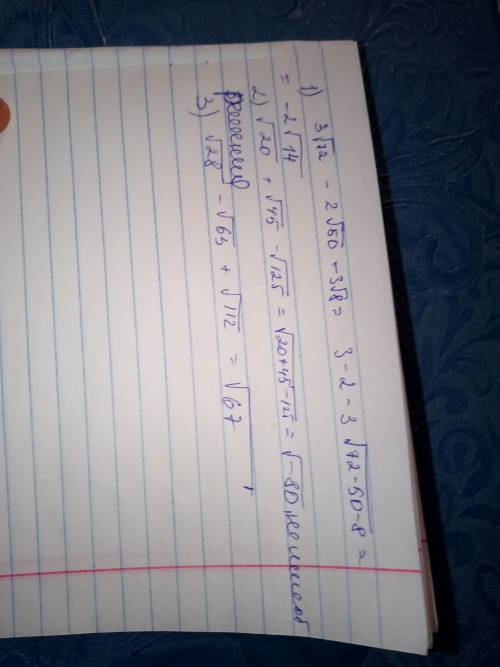 1) 3√72 - 2√50 - 3√8 = 3 - 2 - 3 √72-50-8 =
= -2√14
2) √20 + √45 - √125 = √20+45-125 = √-80,
решения
3) √28 - √63 + √112 = √67